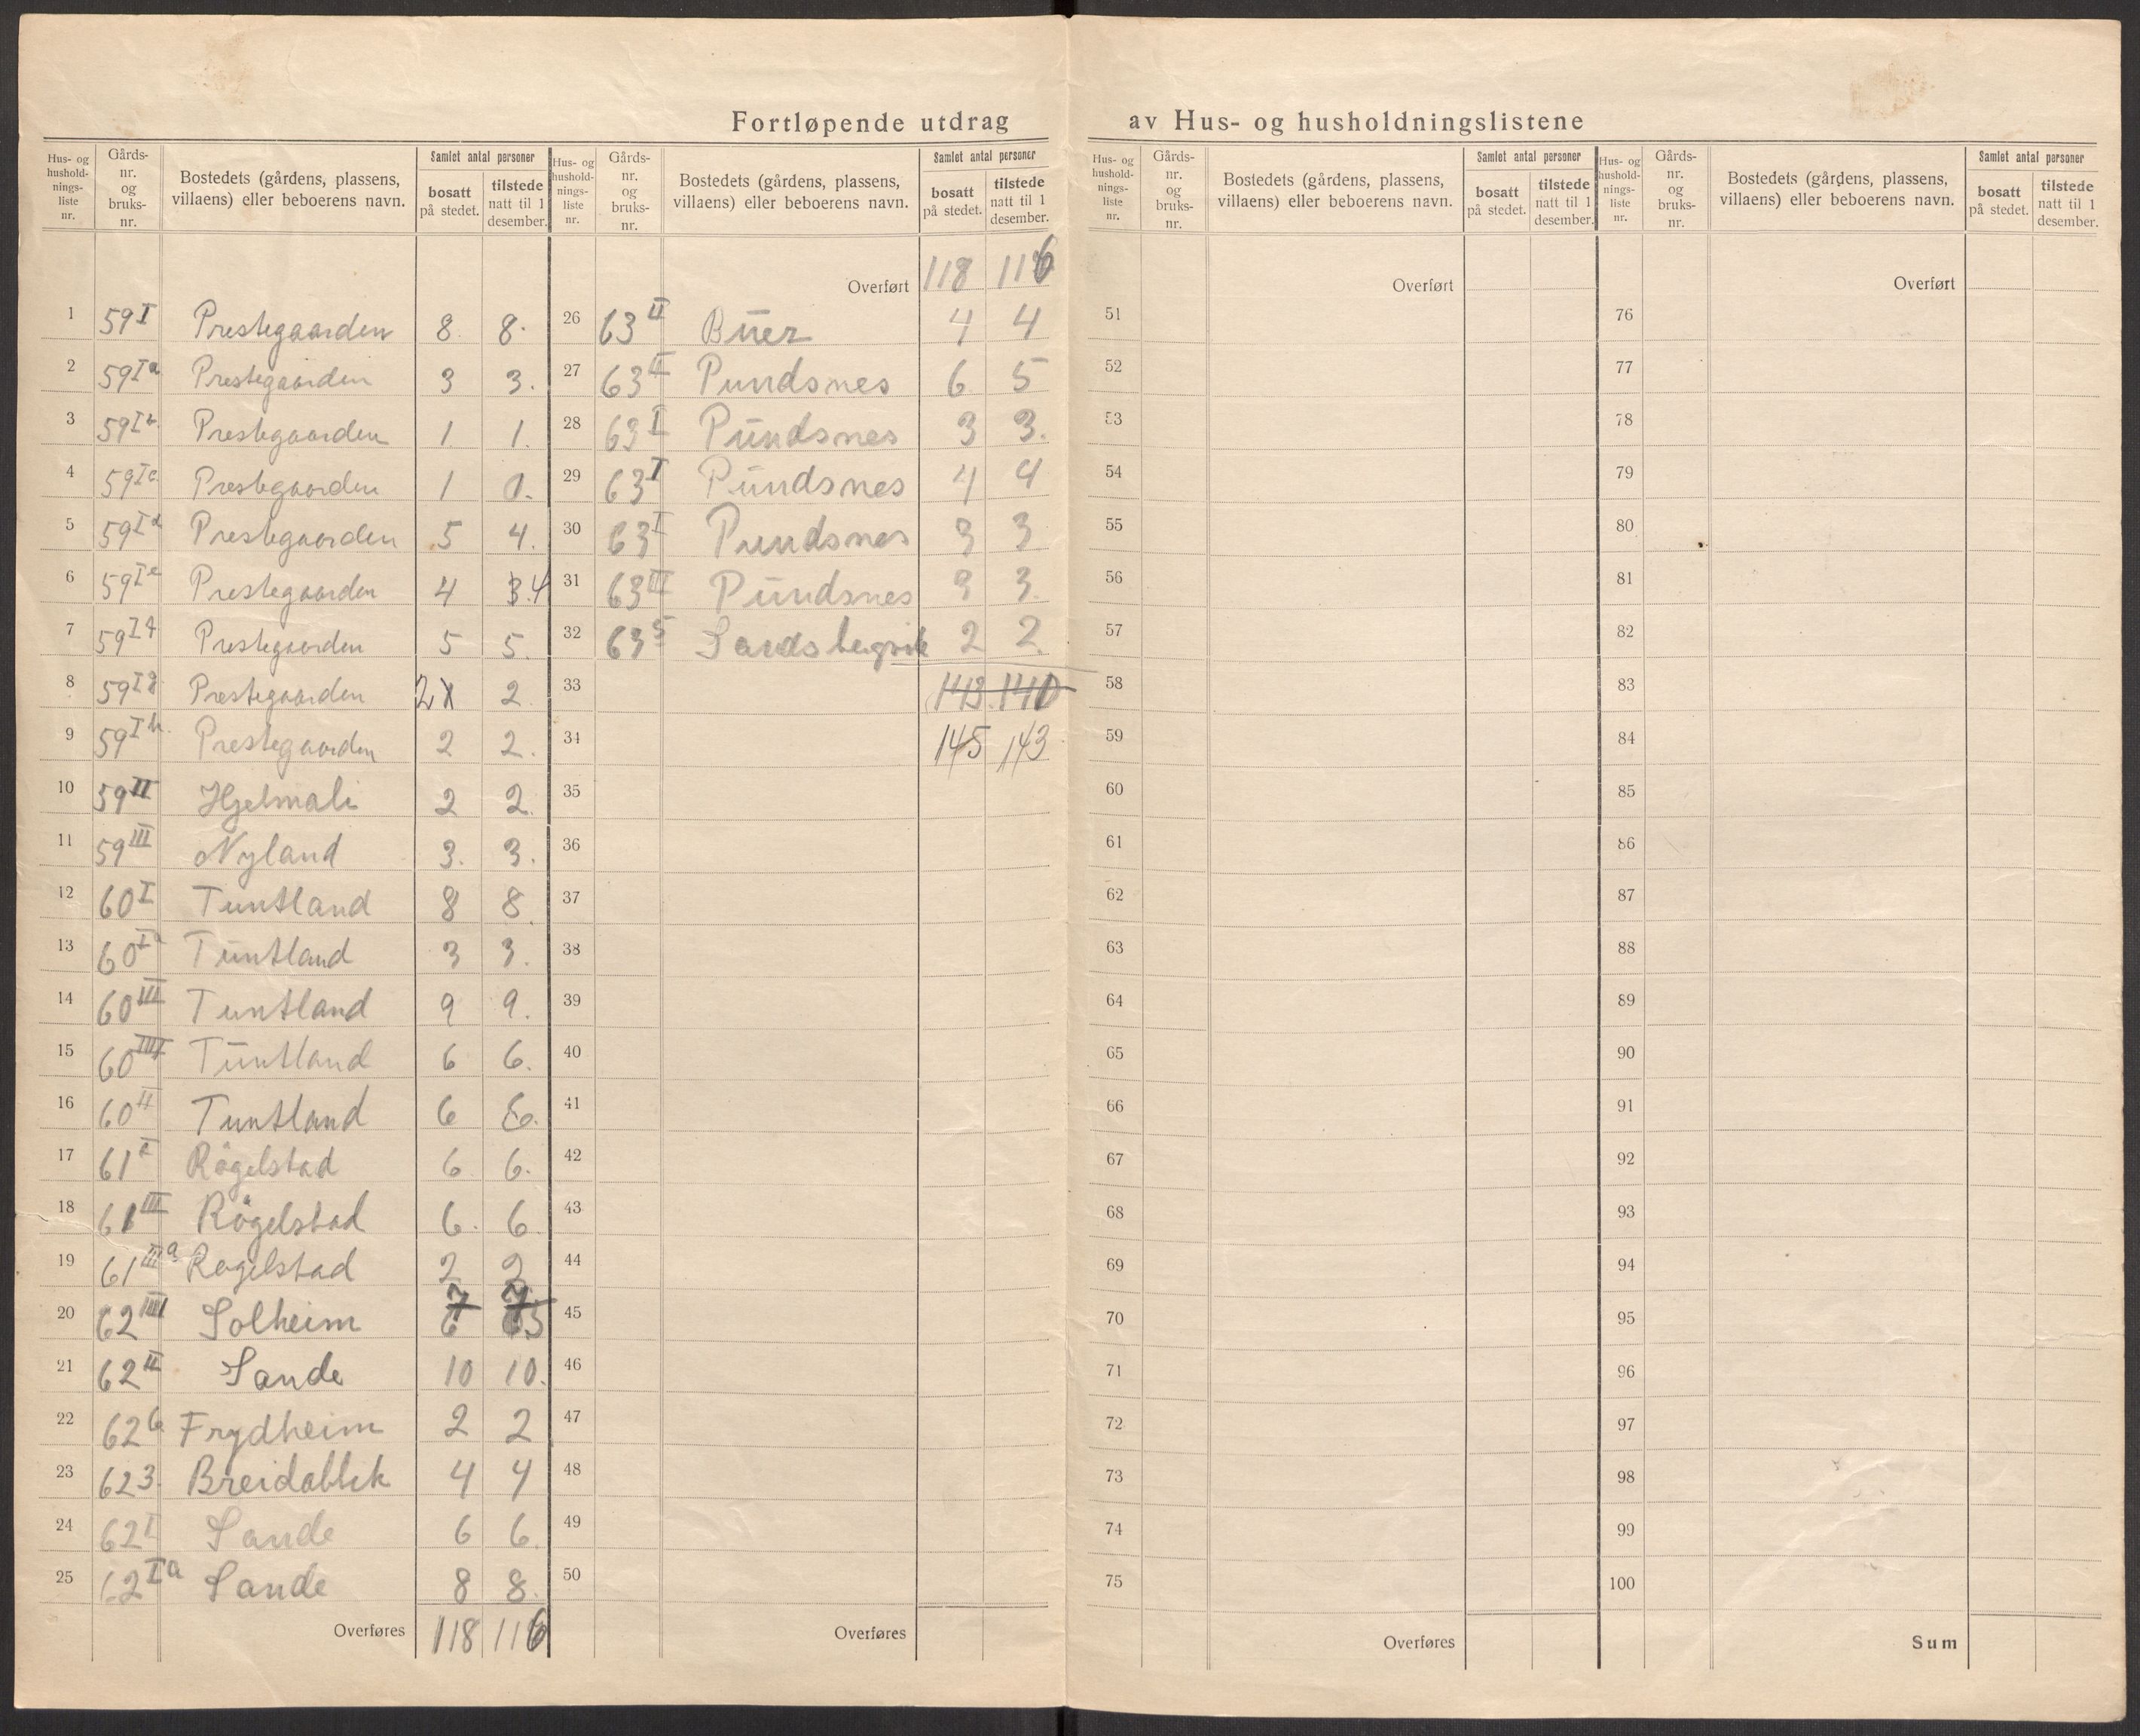 Fortløpende utdrag av Hus- og husholdningslistene
Hus- og hushold-nings-liste nr. | Gårds-nr. og bruks-nr. | Bostedets (gårdens, plassens, villaens) eller beboerens navn. | Samlet antal personer | bosatt på stedet. | tilstede natt til 1 desember.
1 59 I Prestegaarden 8. 8.
2 59 I a Prestegaarden 3 3.
3 59 I b Prestegaarden 1. 1.
4 59 I c Prestegaarden 1 0.
5 59 I d Prestegaarden 5 4.
6 59 I e Prestegaarden 4 3.4
7 59 I f Prestegaarden 5 5.
8 59 I g Prestegaarden 2 2
9 59 I h. Prestegaarden 2 2.
10 59 II Hjelmali 2 2
11 59 III Nyland 3. 3.
12 60 I Tuntland 8 8
13 60 I a Tuntland 3 3.
14 60 III Tuntland 9 9.
15 60 IIII Tuntland 6 6.
16 60 II Tuntland 6 6.
17 61 I Rögelstad 6 6.
18 61 III Rögelstad 6. 6
19 61 III a Rogelstad 2 2
20 62 III Solheim 7 6 7 5
21 62 II Sande 10 10.
22 62 6 Frydheim 2 2
23 62 3. Breidablik 4 4
24 62 I Sande 6 6.
25 62 I a Sande 8 8.
Overføres 118 116
Hus- og hushold-nings-liste nr. | Gårds-nr. og bruks-nr. | Bostedets (gårdens, plassens, villaens) eller beboerens navn. | Samlet antal personer | bosatt på stedet. | tilstede natt til 1 desember.
Overført 118 116
26 63 II Buer 4 4
27 63 II Pundsnes 6 5
28 63 I Pundsnes 3 3.
29 63 I Pundsnes 4 4
30 63 I Pundsnes 3 3
31 63 III Pundsnes 3 3.
32 63 5 Sandsbergvik 2 2.
33 143. 140
34 145 143
35
36
37
38
39
40
41
42
43
44
45
46
47
48
49
50
Overføres
Hus- og hushold-nings-liste nr. | Gårds-nr. og bruks-nr. | Bostedets (gårdens, plassens, villaens) eller beboerens navn. | Samlet antal personer | bosatt på stedet. | tilstede natt til 1 desember.
Overført
51
52
53
54
55
56
57
58
59
60
61
62
63
64
65
66
67
68
69
70
71
72
73
74
75
Overføres
Hus- og hushold-nings-liste nr. | Gårds-nr. og bruks-nr. | Bostedets (gårdens, plassens, villaens) eller beboerens navn. | Samlet antal personer | bosatt på stedet. | tilstede natt til 1 desember.
Overført
76
77
78
79
80
81
82
83
84
85
86
87
88
89
90
91
92
93
94
95
96
97
98
99
100
Sum